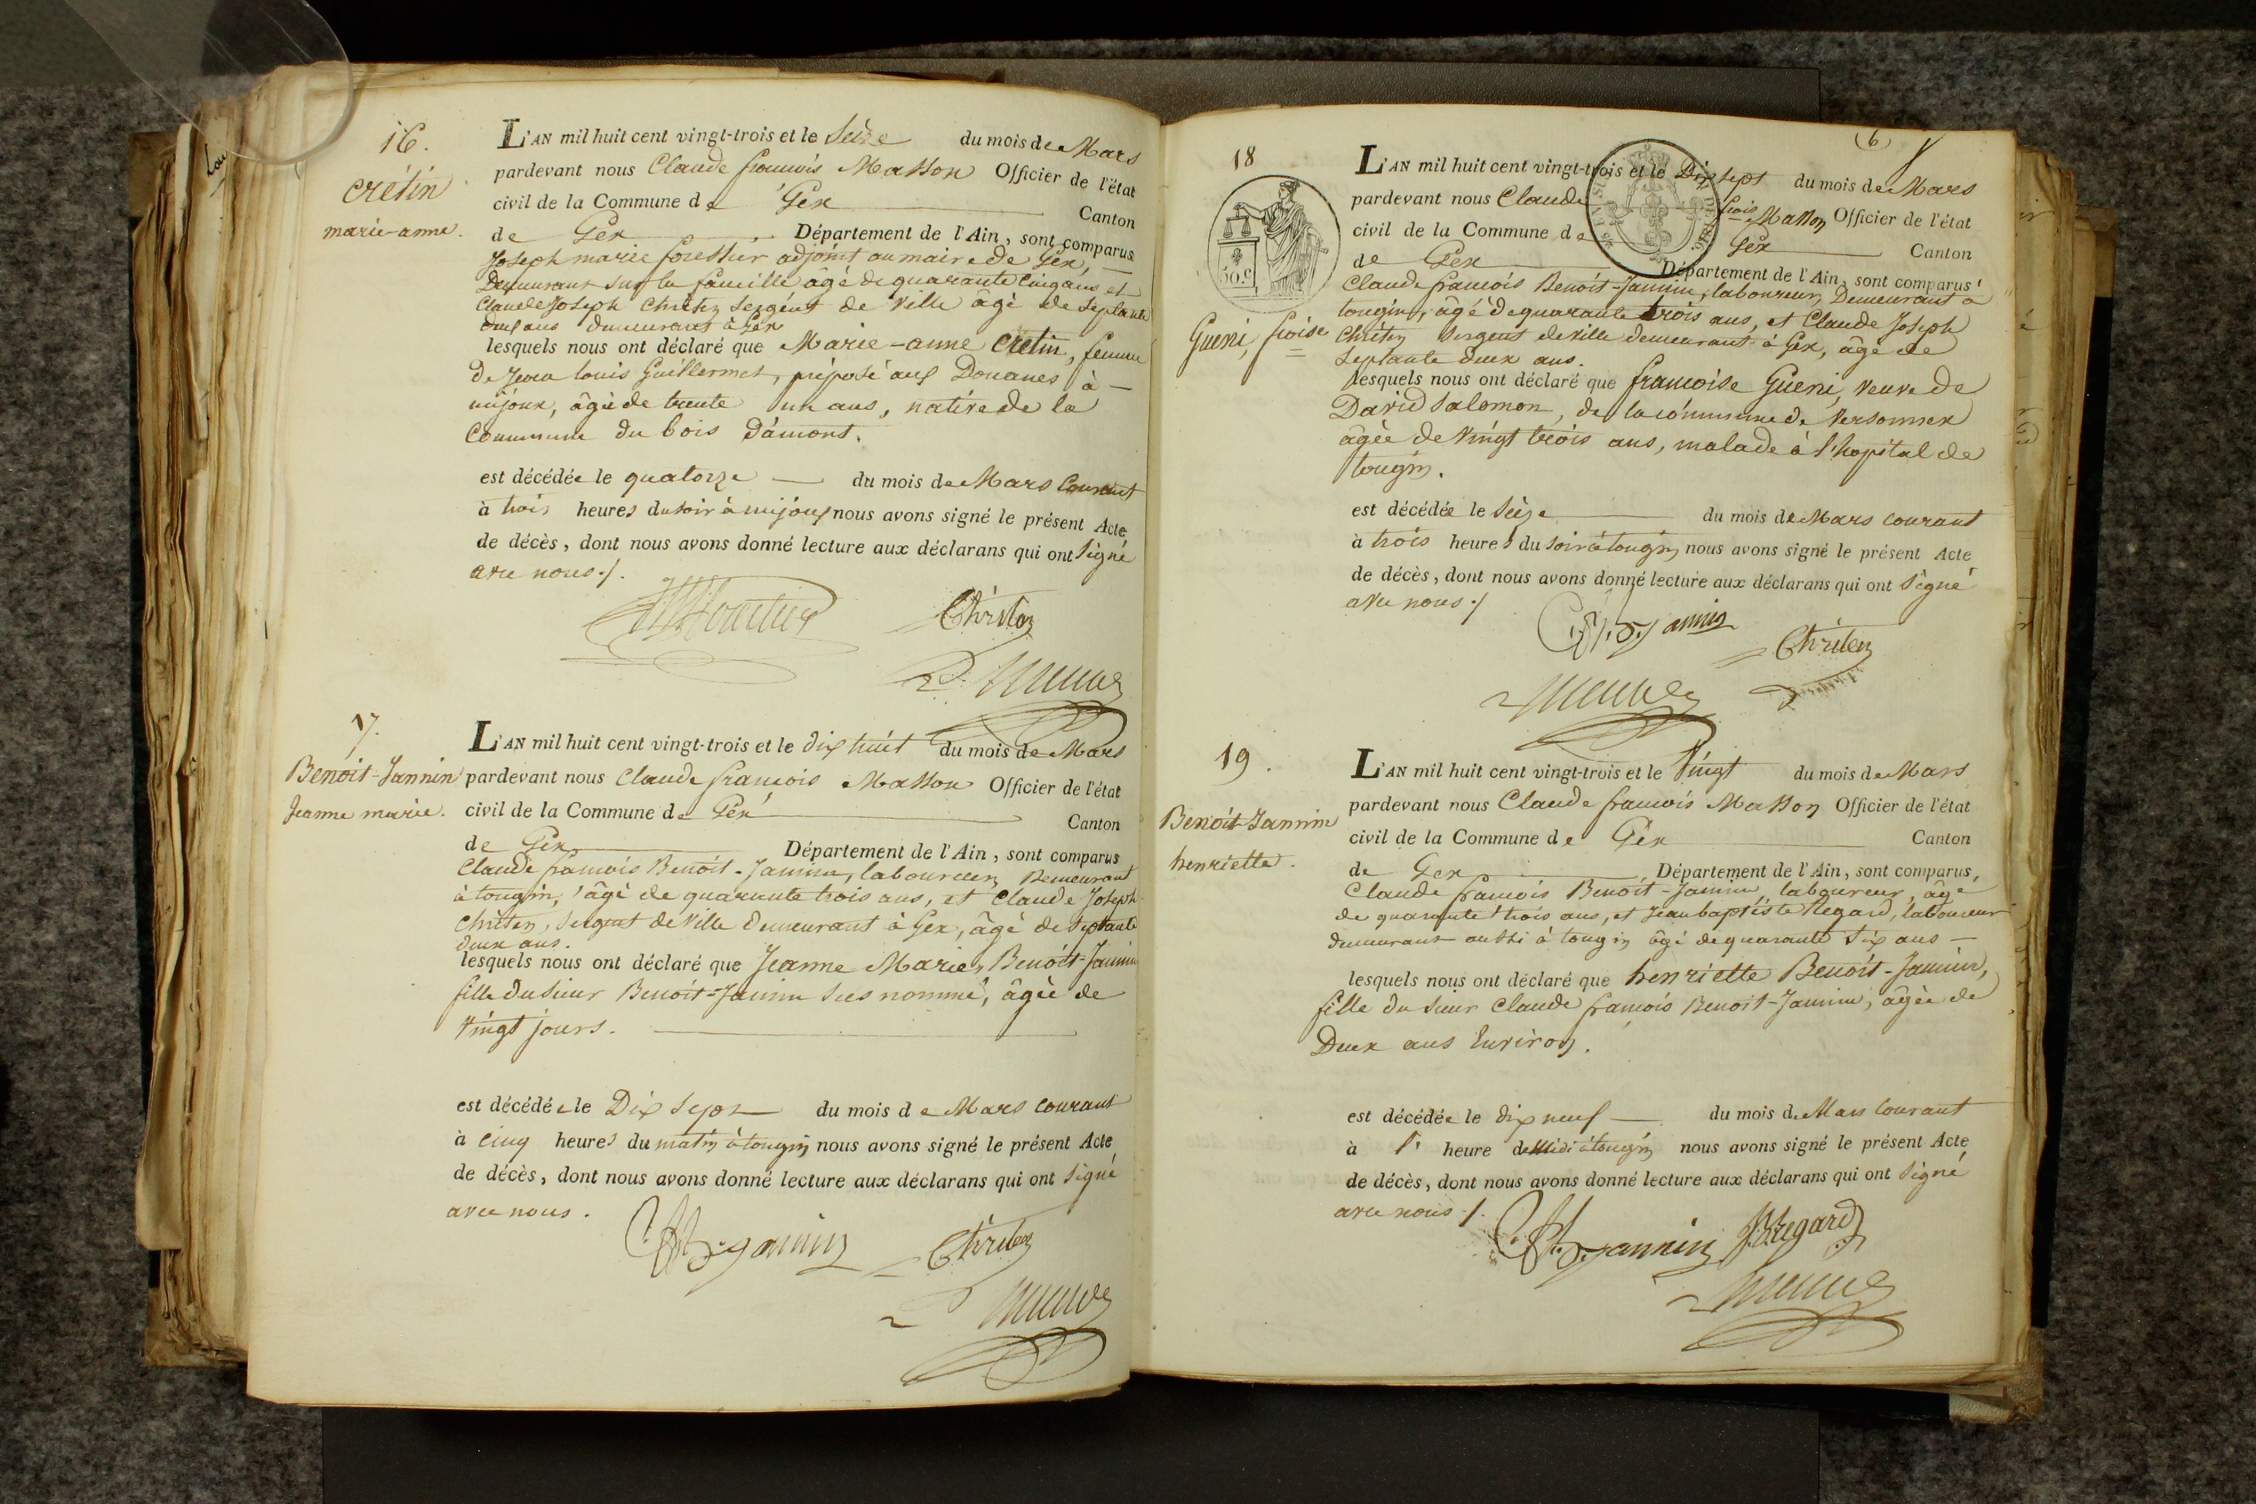 16.
Crétin
marie-anne.
L'AN mil huit cent vingt-trois et le Seize du mois de Mars
pardevant nous Claude françois Masson Officier de l'état
civil de la Commune de Gex Canton
de Gex Département de l'Ain, sont comparus
Joseph marie forestier adjoint au maire de Gex,
Demeurant sur la faucille âgé de quarante Cinq ans et
Claude Joseph Chrêten Sergent de Ville âgé de Septante
deux ans demeurant à Gex
lesquels nous ont déclaré que Marie-anne Cretin, femme
de Jean louis Guillermet, préposé aux Douanes à
mijoux, âgée de trente un ans, native de la
Commune du bois D'amont.
est décédée le quatorze du mois de Mars Courant
à trois heures du soir à mijoux nous avons signé le présent Acte
de décès, dont nous avons donné lecture aux déclarans qui ont Signé
avec nous ./.
Chrêten
17.
Benoit-Jannin
Jeanne marie.
L'AN mil huit cent vingt-trois et le dix huit du mois de Mars
pardevant nous Claude françois Masson Officier de l'état
civil de la Commune de Gex Canton
de Gex Département de l'Ain, sont comparus
Claude françois Benoit-Jannin, laboureur, Demeurant
à tougin, âgé de quarante trois ans, et Claude Joseph
Chrêten, Sergent de Ville demeurant à Gex, âgé de Septante
deux ans.
lesquels nous ont déclaré que Jeanne Marie, Benoit-Jannin
fille du Sieur Benoit-Jannin Sus nommé, âgée de
Vingt jours.
est décédée le Dix Sept du mois de Mars Courant
à Cinq heures du matin à tougin nous avons signé le présent Acte
de décès, dont nous avons donné lecture aux déclarans qui ont Signé
avec nous.
C. f. B. Jannin
Chrêten
(6)
18
50 c
Gueni, froise
L'AN mil huit cent vingt-trois et le Dix sept du mois de Mars
pardevant nous Claude frois Masson Officier de l'état
civil de la Commune de Gex Canton
de Gex Département de l'Ain, sont comparus
Claude françois Benoit-Jannin, laboureur, Demeurant à
tougin, âgé de quarante trois ans, et Claude Joseph
Chrêten Sergent de Ville demeurant à Gex, âgé de
Septante deux ans.
lesquels nous ont déclaré que françoise Gueni, Veuve de
David Salomon, de la commune de Versonnex
âgée de Vingt trois ans, malade à l'hopital de
tougin.
est décédée le Seize du mois de Mars courant
à trois heures du soir à tougin nous avons signé le présent Acte
de décès, dont nous avons donné lecture aux déclarans qui ont Signé
avec nous ./
C. f. B. Jannin
Chrêten
19.
Benoit-Jannin
henriette.
L'AN mil huit cent vingt-trois et le Vingt du mois de Mars
pardevant nous Claude françois Masson Officier de l'état
civil de la Commune de Gex Canton
de Gex Département de l'Ain, sont comparus,
Claude françois Benoit-Jannin, laboureur, âgé
de quarante trois ans, et Jean baptiste Regard, laboureur
demeurant aussi à tougin âgé de quarante Six ans
lesquels nous ont déclaré que henriette Benoit-Jannin,
fille du Sieur Claude françois Benoit-Jannin, âgée de
Deux ans Environ.
est décédée le dix neuf du mois de Mars Courant
à heure de Midi à tougin nous avons signé le présent Acte
de décès, dont nous avons donné lecture aux déclarans qui ont Signé
avec nous ./.
C. f. B. Jannin J. B. Regard